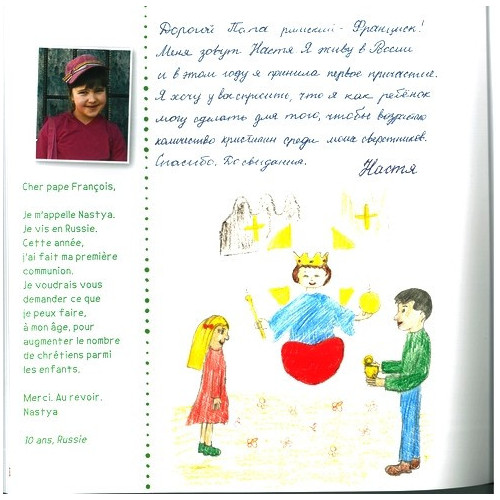 Дорогой Папа римский - Франциск!
Меня зовут Настя Я живу в России
и в этом году я приняла первое причастие.
Я хочу у вас спросить, что я как ребёнок
могу сделать для того, чтобы возросло
количество христиан среди моих сверстников.
Спасибо. До свидания.
Настя
Cher pape François,
Je m'appelle Nastya.
Je vis en Russie.
Cette année,
j'ai fait ma première
communion.
Je voudrais vous
demander ce que
je peux faire,
à mon âge, pour
augmenter le nombre
de chrétiens parmi
les enfants.
Merci. Au revoir.
Nastya
10 ans, Russie